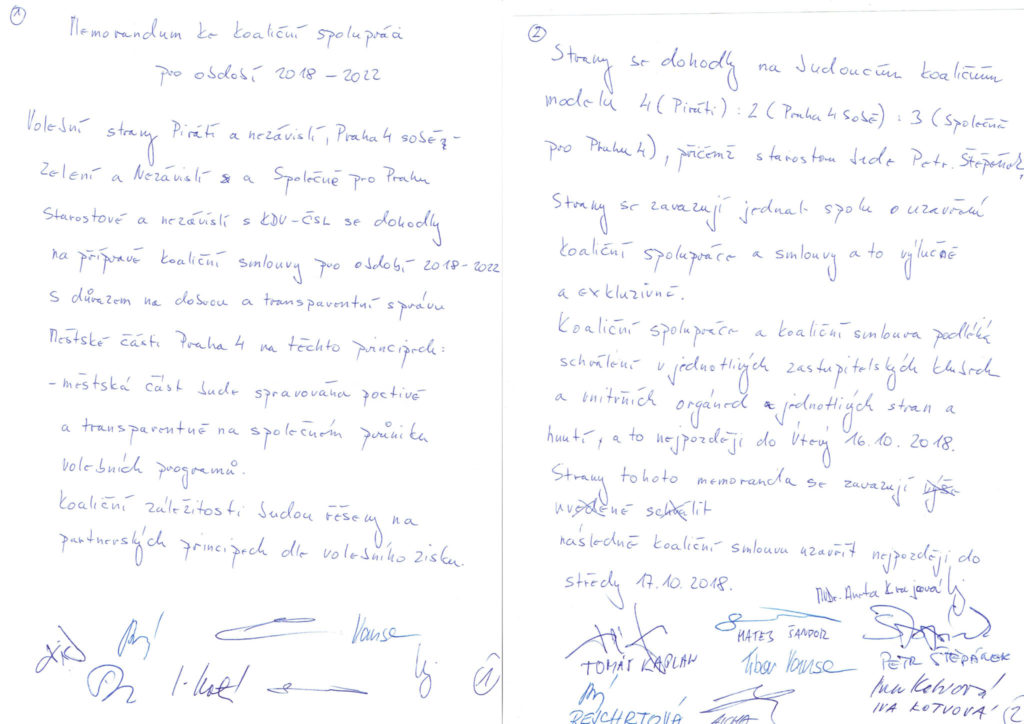 1
Memorandum ke koaliční spolupráci
pro období 2018 – 2022
Volební strany Piráti a nezávislí, Praha 4 sobě -
Zelení a Nezávislí a Společně pro Prahu
Starostové a nezávislí s KDU-ČSL se dohodly
na přípravě koaliční smlouvy pro období 2018-2022
s důrazem na dobrou a transparentní správu
Městské části Praha 4 na těchto principech:
- městská část bude spravována poctivě
a transparentně na společném průniku
volebních programů.
Koaliční záležitosti budou řešeny na
partnerských principech dle volebního zisku.
Vanse
1
2
Strany se dohodly na budoucím koaličním
modelu 4 (Piráti) : 2 (Praha 4 sobě) : 3 (Společně
pro Prahu 4), přičemž starostou bude Petr Štěpánek,
Strany se zavazují jednat spolu o uzavření
koaliční spolupráce a smlouvy a to výlučně
a exkluzivně.
Koaliční spolupráce a koaliční smlouva podléhá
schválení v jednotlivých zastupitelských klubech
a vnitřních orgánech jednotlivých stran a
hnutí, a to nejpozději do Úterý 16.10. 2018.
Strany tohoto memoranda se zavazují výše
uvedené schválit
následně koaliční smlouvu uzavřít nejpozději do
středy 17.10. 2018.
MUDr. Aneta Krajcová
TOMÁŠ KAPLAN
MATEJ ŠANDOR
Tibor Vanse
PETR ŠTĚPÁNEK
REICHRTOVÁ
IVA KOTVOVÁ
2